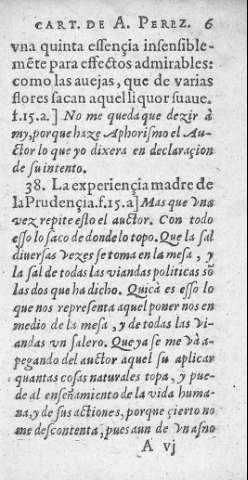 CART. DE A. PEREZ. 6
vna quinta essençia insensible-
mẽte para effectos admirables:
como las auejas, que de varias
flores sacan aquel liquor suaue.
f.15.a.] No me queda que dezir à
my, porque haze Aphorismo el Au-
ctor lo que yo dixera en declaraçion
de su intento.
38. La experiençia madre de
la Prudençia. f.15.a] Mas que vna
vez repite esto el auctor. Con todo
esso lo saco de donde lo topo. Que la sal
diuersas vezes se toma en la mesa, y
la sal de todas las viandas politicas sõ
las dos que ha dicho. Quiçà es esso lo
que nos representa aquel poner nos en
medio de la mesa, y de todas las vi-
andas vn salero. Que ya se me và a-
pegando del auctor aquel su aplicar
quantas cosas naturales topa, y pue-
de al enseñamiento de la vida huma-
na, y de sus actiones, porque çierto no
me descontenta, pues aun de vn asno
A vj